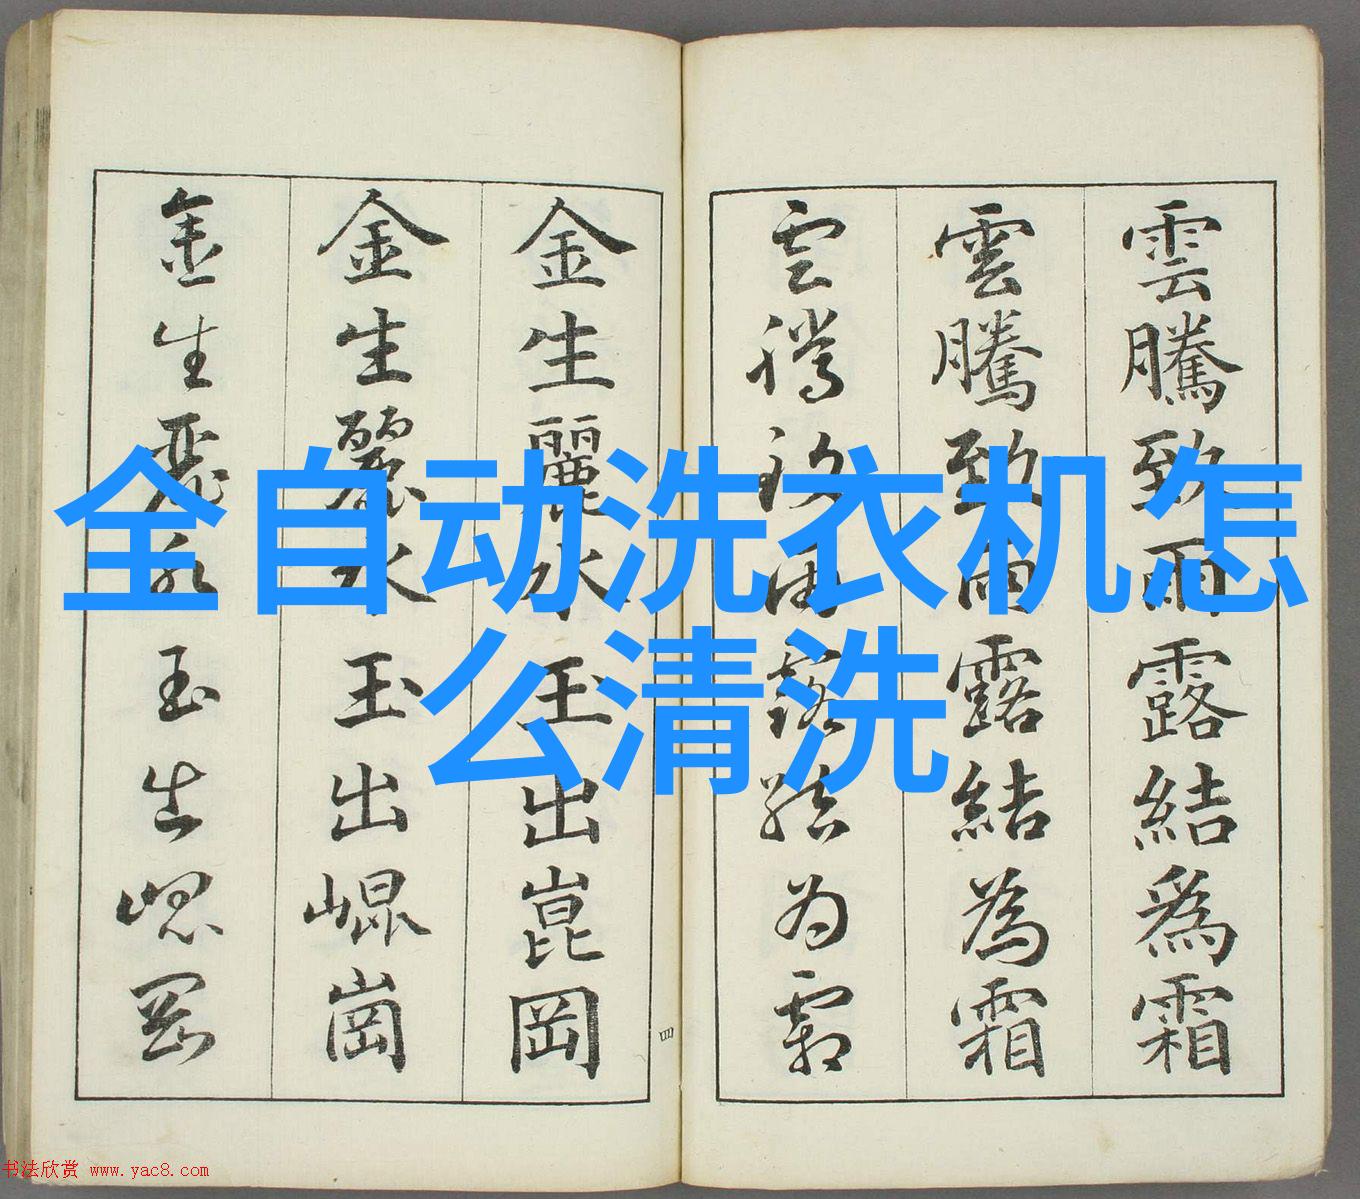 全自动洗衣机怎
么清洗
雲騰致雨露結爲霜
雲騰致雨露結為霜
雲騰致雨露結为霜
金生麗水玉出崑岡
金生麗水玉出崐崗
金生麗水玉出崐岡
四
书法欣赏 www.yac8.com